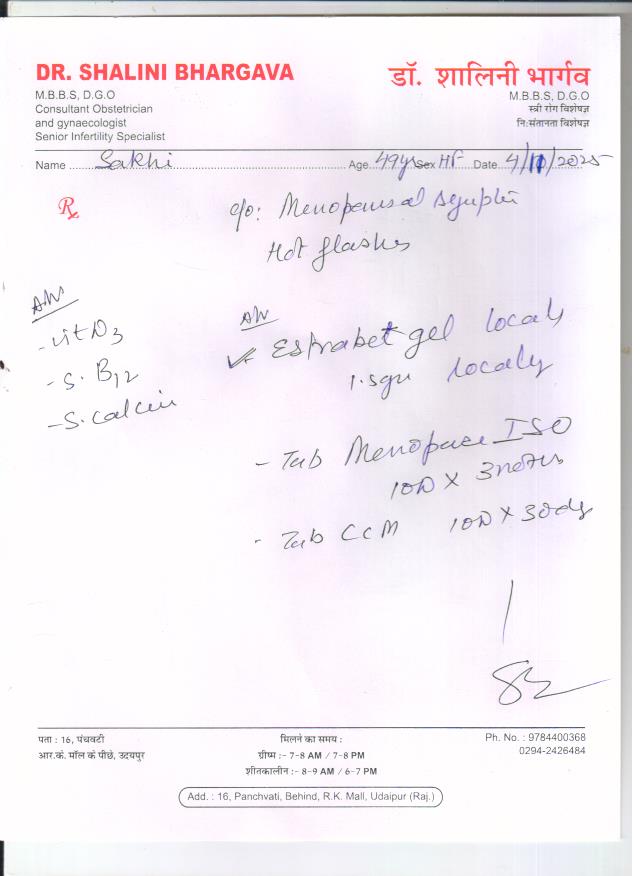 DR. SHALINI BHARGAVA
M.B.B.S, D.G.O
Consultant Obstetrician
and gynaecologist
Senior Infertility Specialist
डॉ. शालिनी भार्गव
M.B.B.S, D.G.O
स्त्री रोग विशेषज्ञ
नि:संतानता विशेषज्ञ
Name Sakhi Age 49yrs Sex HF Date 4/10/2025
Rx
c/o: Menopausal
Hot flashes
Adv
- Vit D3
- S. B12
- S. Calcium
Adv
✓ Estrabet gel locally
1.5gm locally
- Tab Menopace ISO
1OD X 3
- Tab CCM 1OD X 30dy
पता : 16, पंचवटी
आर.कें. मॉल कें पीछे, उदयपुर
मिलने का समय :
ग्रीष्म :- 7-8 AM / 7-8 PM
शीतकालीन :- 8-9 AM / 6-7 PM
Ph. No. : 9784400368
0294-2426484
Add. : 16, Panchvati, Behind, R.K. Mall, Udaipur (Raj.)